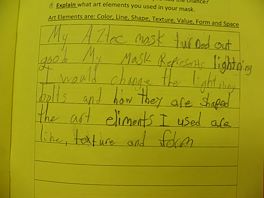 Explain what art elements you used in your mask.
Art Elements are: Color, Line, Shape, Texture, Value, Form and Space
My Aztec mask turned out
good My Mask Represents lightning
I would change the lightning
bolts and how they are shaped
the art eliments I used are
line, texture and form